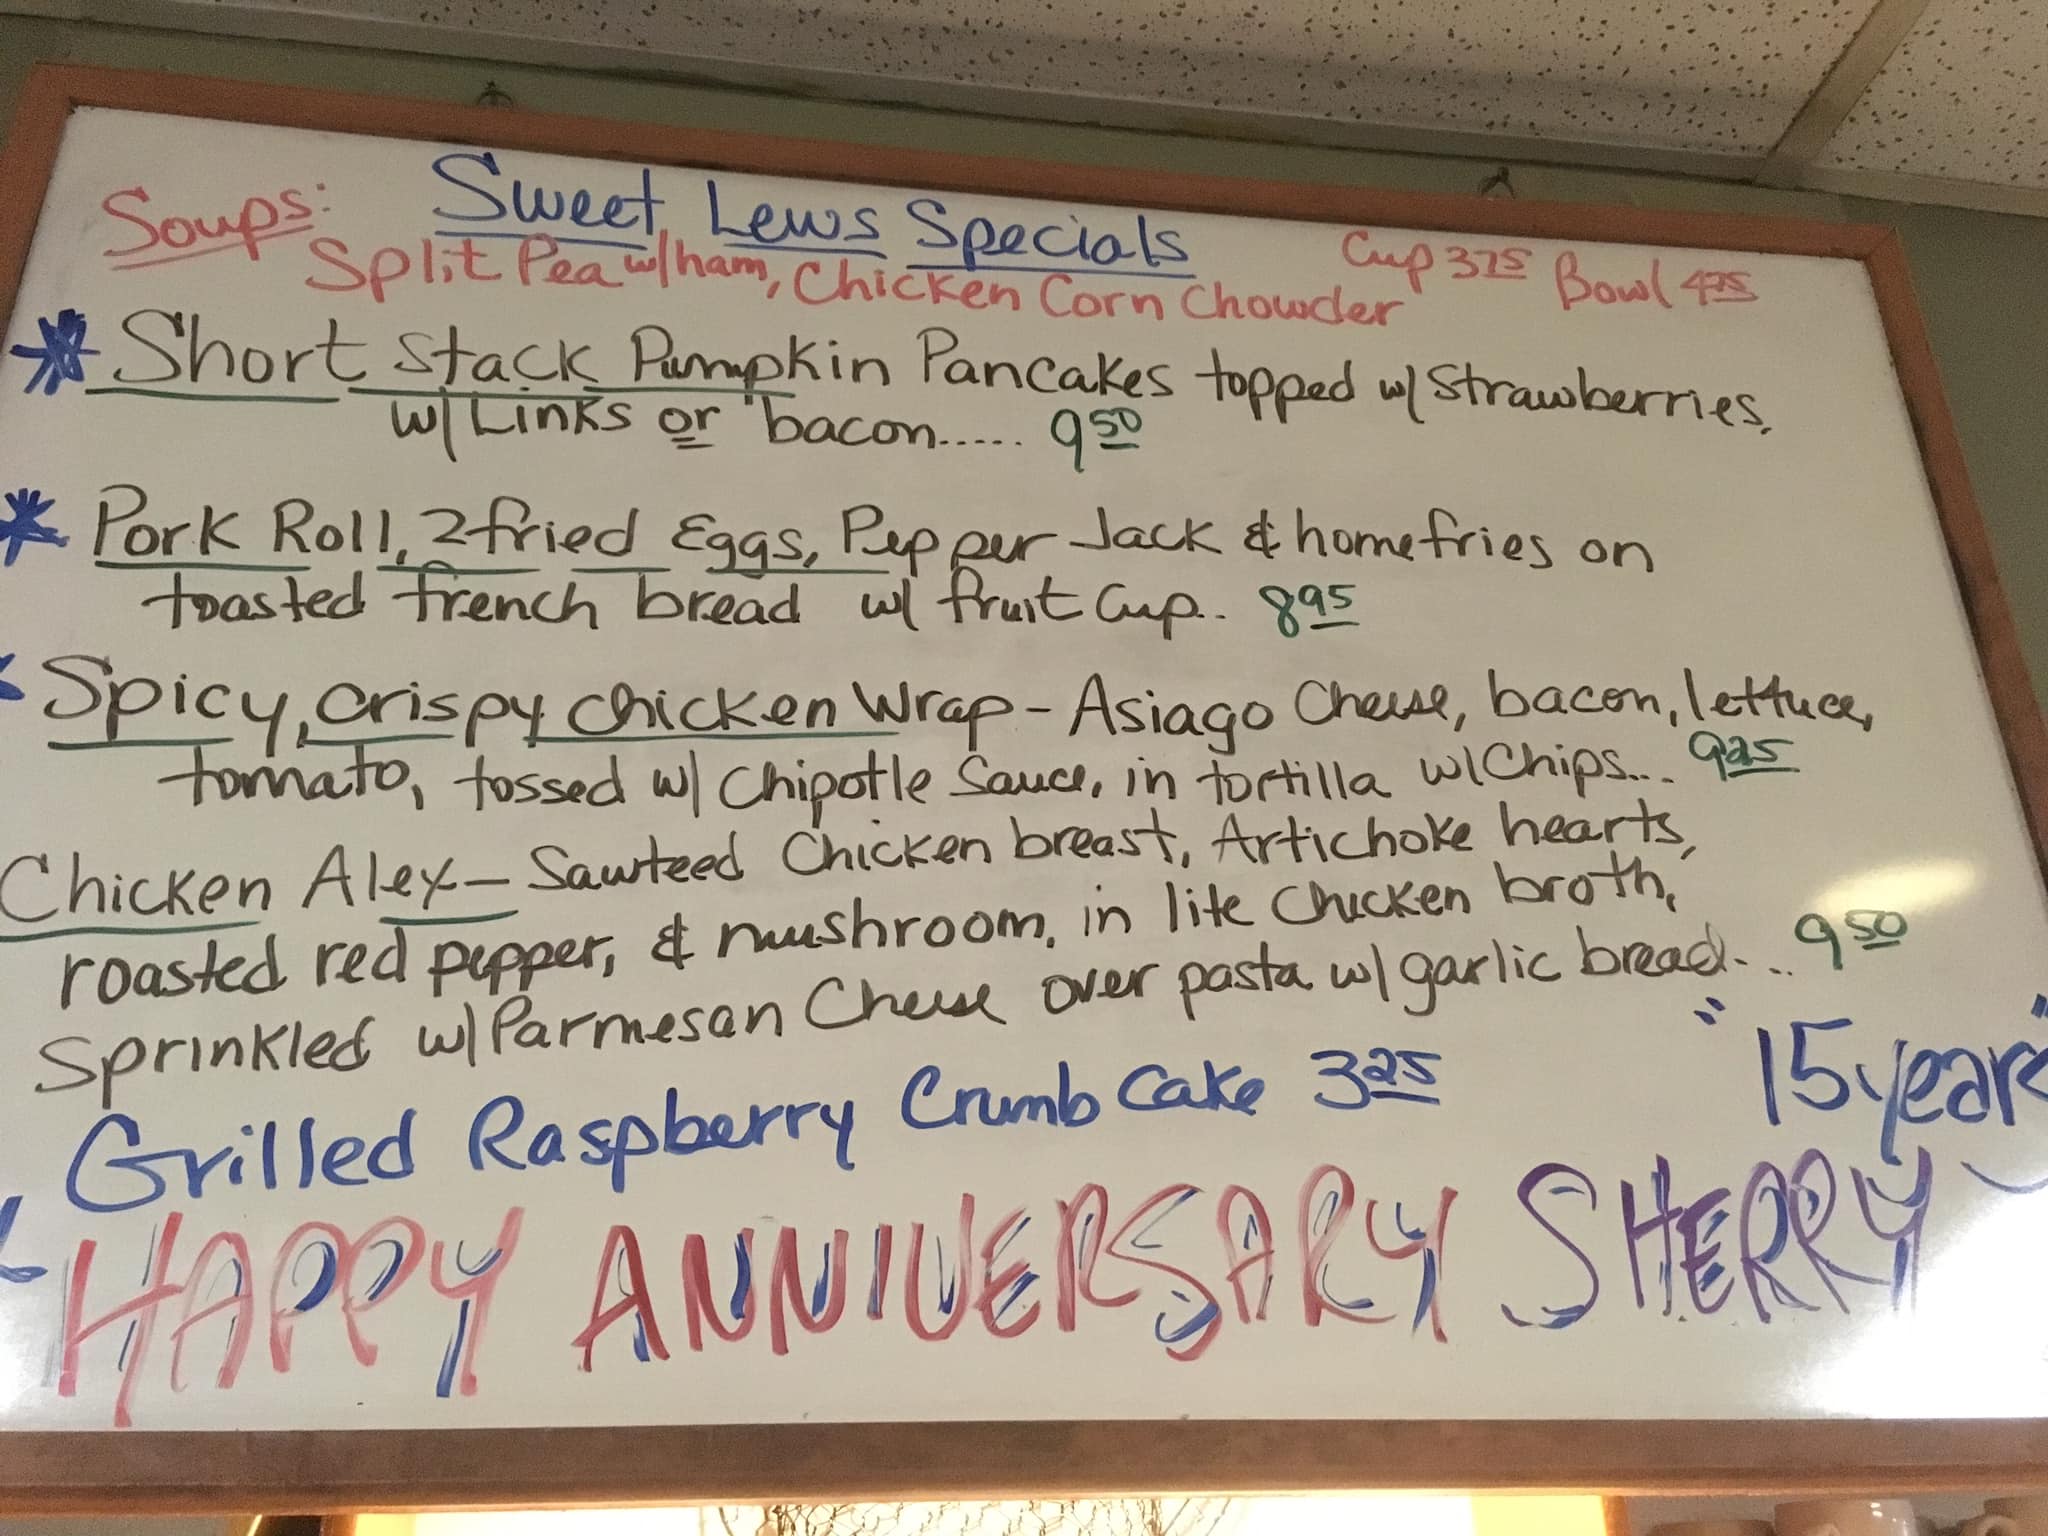 Sweet Lews Specials
Soups:
Split Pea w/ham, Chicken Corn Chowder
Cup 375 Bowl 475
* Short Stack Pumpkin Pancakes topped w/ Strawberries,
w/ Links or bacon..... 9 50
* Pork Roll, 2 fried Eggs, Pepper Jack & homefries on
toasted french bread w/ fruit Cup.. 8 95
Spicy, crispy chicken Wrap - Asiago Cheese, bacon, lettuce,
tomato, tossed w/ Chipotle Sauce, in tortilla w/ Chips... 9 25
Chicken Alex - Sawteed Chicken breast, Artichoke hearts,
roasted red pepper, & mushroom, in lite Chicken broth,
Sprinkled w/ Parmesan Cheese over pasta w/ garlic bread... 9 50
Grilled Raspberry Crumb Cake 3 25
"15 years"
HAPPY ANNIVERSARY SHERRY